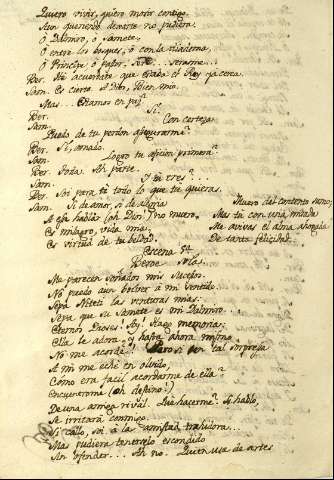 Quiero vivir, quiero morir contigo.
Aun queriendo dexarte no pudiera
O Dalmiro, ó Samete,
O entre los bosques, ó con la diadema,
O Principe, ó pastor. Seré... seramos...
Ber. No acuerdate que estaba el Rey ya cerca.
Sam. Es cierto. A Dios, Bien mio.
Mas... Estamos en paz?
Ber. Si.
Sam. Con certeza.
Puedo de tu perdon asegurarme?
Ber. Si, amado.
Sam. Logro tu aficion primera?
Ber. Toda. Ah parte.
Sam. Y tu eres?...
Ber. Soi para tí todo lo que tu quieras.
Sam. Si de amor, si de alegria Muero del contento sumo;
A esta hablar (oh Dios!) no muero, Mas tu con una mirada
Es milagro, vida mia, Me avivas el alma ahogada
Es virtud de tu beldad. De tanta felicidad.
Escena
Beroe sola.
Me parecen soñados mis sucesos.
No puedo aun bolver á mi sentido.
Sepa Niteti las venturas mias:
Sepa que su Samete es mi Dalmiro...
Eternos Dioses! Ay! Hago memoria:
Ella le adora, y hasta ahora mismo
No me acordé! Pero si en tal sorpresa
A mi me eché en olvido,
Como era facil acordarme de ella?
Encuentrome (oh destino!)
De una amiga rival. Que hacerme? Si hablo,
Se irritará conmigo.
Si callo, soi á la amistad traidora...
Mas pudiera tenerselo escondido
Sin ofender... Ah no. Quien usa de artes